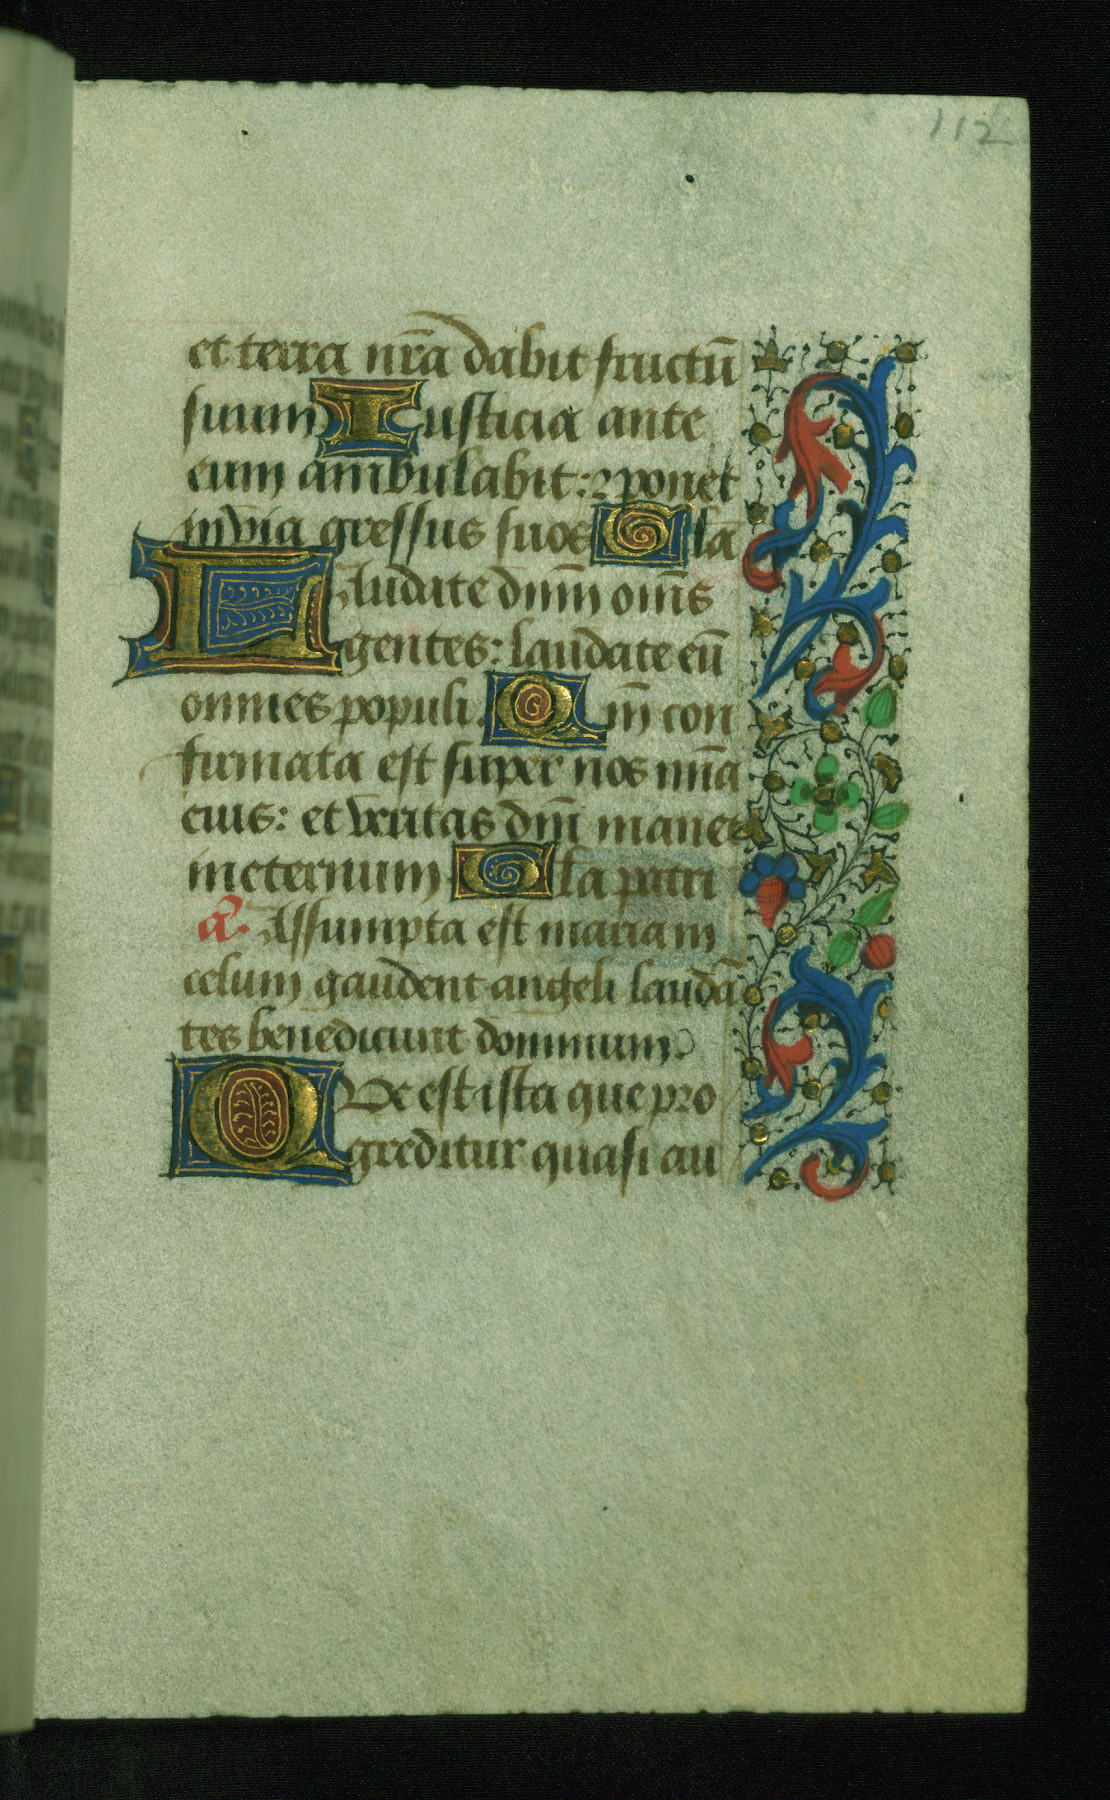 112
et terra nr̄a dabit fructū
suum Iusticia ante
eum ambulabit: ⁊ ponet
in via gressus suos Glā
Laudate dnm̄ om̄s
gentes: laudate eū
omnes populi. Qm̄ con
firmata est super nos mīa
eius: et veritas dnī manet
in eternum Gła patri
a. Assumpta est maria in
celum gaudent angeli laudā
tes benedicunt dominum.
Que est ista que pro
greditur quasi au